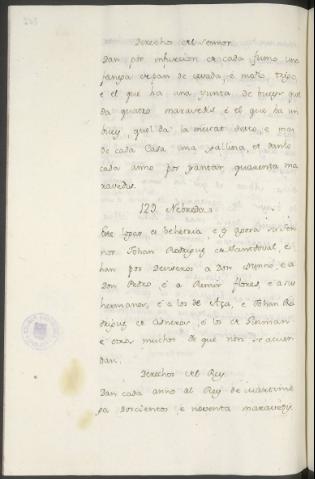 Derechos del Sennor
Dan por infurcion de cada fumo una
fanega de pan de cevada, e medio trigo,
e el que ha una yunta de bueys quel
da quatro maravedis e el que ha un
buey, quel da la meitat desto, e mas
de cada Casa una gallina, et danle
cada anno por yantar quarenta ma
ravedis.
129. Nebreda
Este logar es behetria, e es agora su Sen
nor Johan Rodriguez de Sandoval, e
han por Deviseros a Don Nunno, e a
Don Pedro, e a Remir flores, e a sus
hermanos, e a los de Aza, e Johan Ro
driguez de Cisneros, e los de Guzman
e otros muchos de que non se acuer
dan.
Derechos del Rey
Dan cada anno al Rey de martinie
ga Docientos e noventa maravedis,